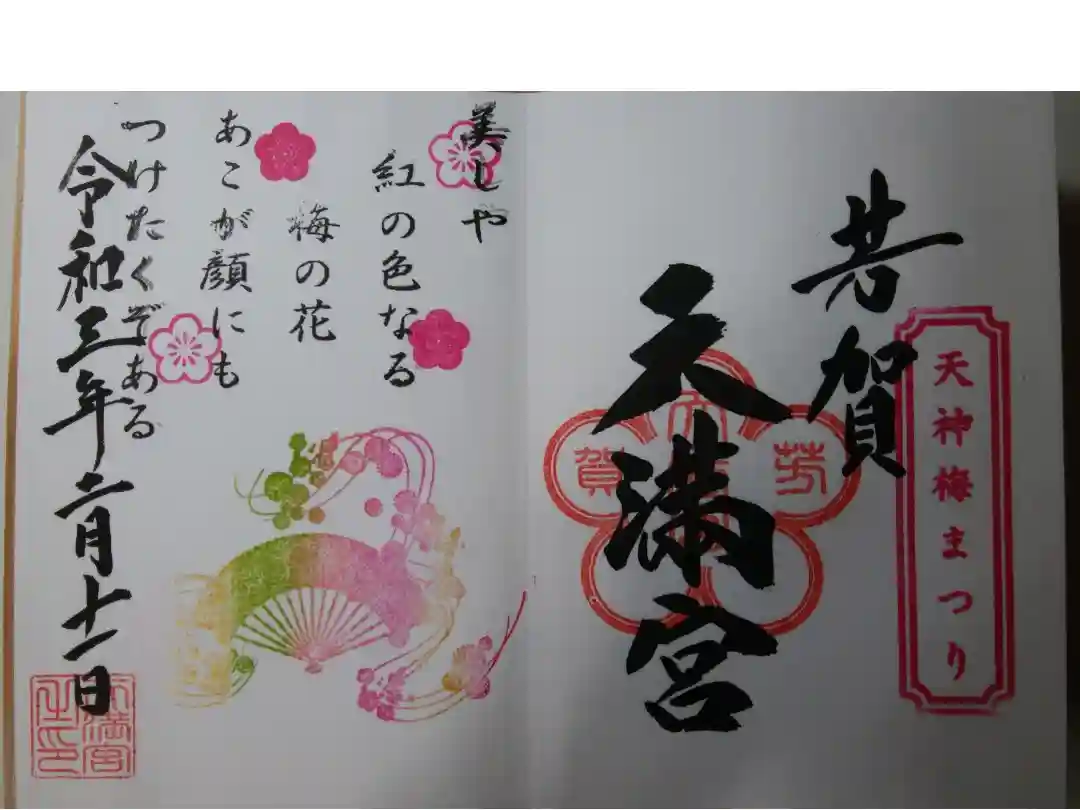 天神梅まつり
芳賀
天満宮
賀
芳
美しや
紅の色なる
梅の花
あこが顔にも
つけたくぞある
令和三年二月十一日
天満宮